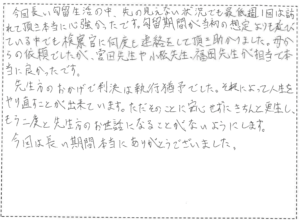 今回長い勾留生活の中、先の見えない状況でも最低週1回は訪
れて頂き本当に心強かったです。勾留期間が当初の想定よりも延び
ている中でも検察官に何度も連絡をして頂き助かりました。母から
の依頼でしたが、宮田先生や小牧先生、福岡先生が担当で本
当に良かったです。
先生方のおかげで判決は執行猶予でした。それによって人生を
やり直すことが出来ています。ただそのことに安心せずにきちんと更生し、
もう二度と先生方のお世話になることがないようにします。
今回は長い期間本当にありがとうございました。